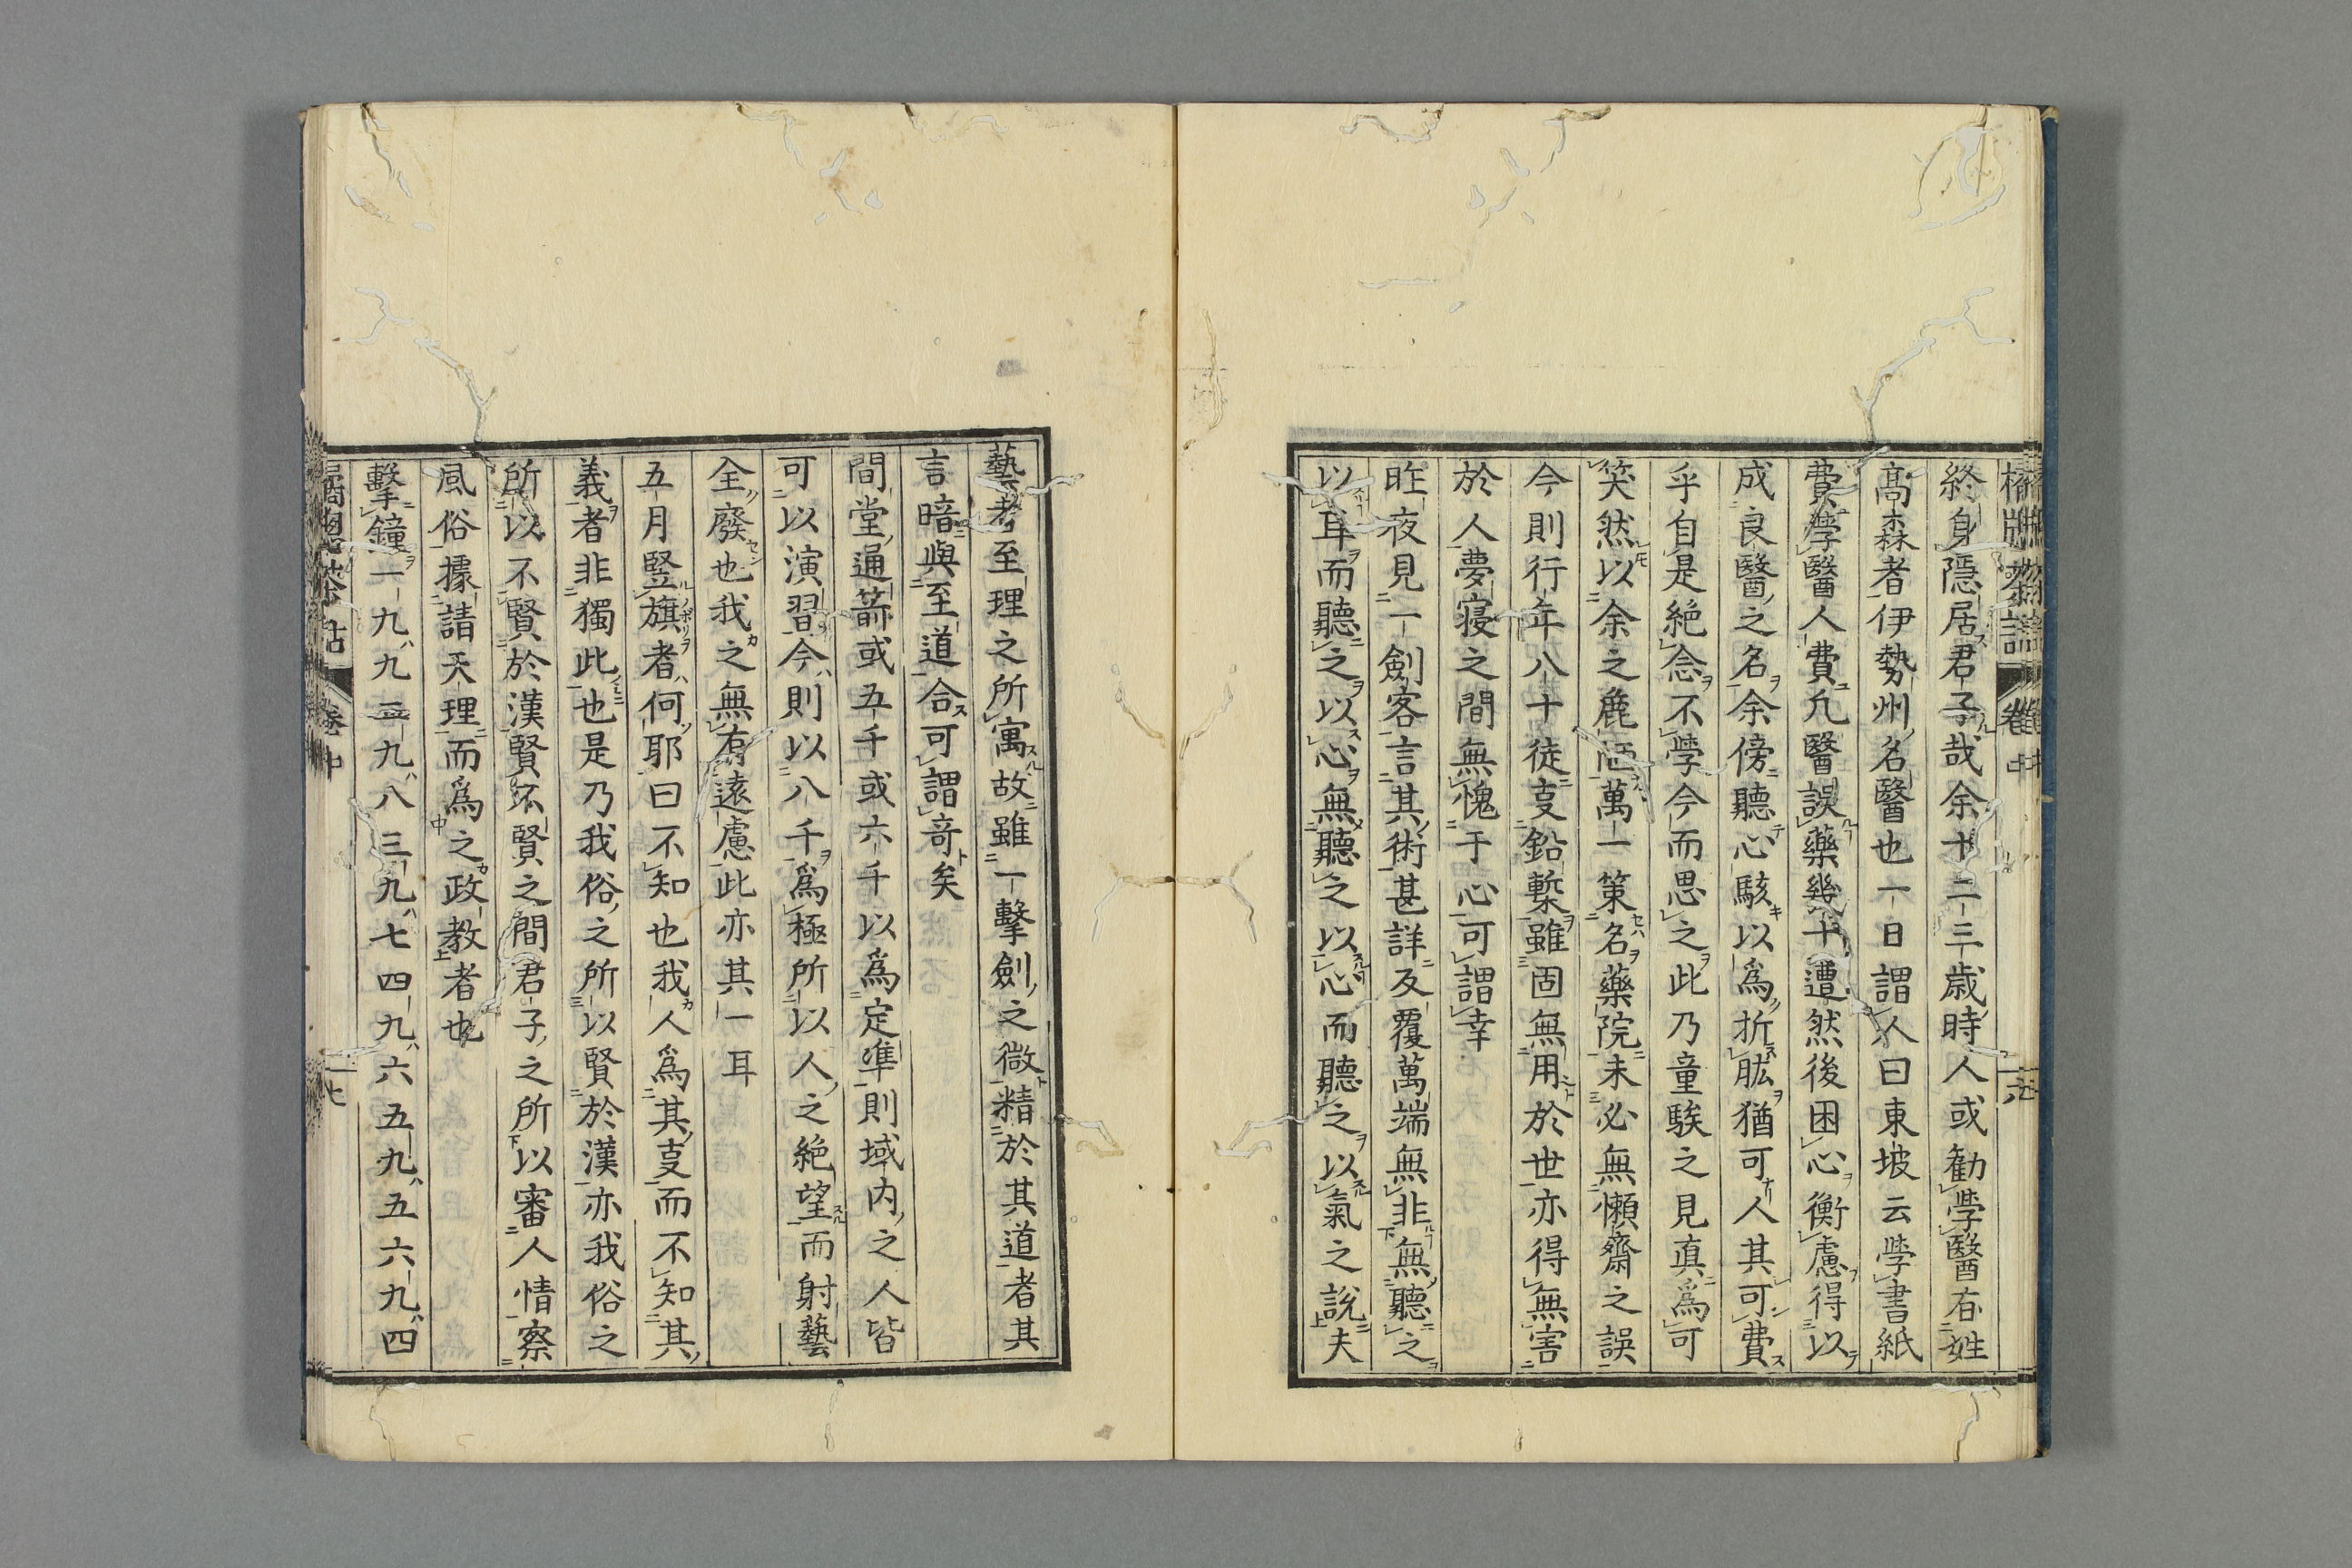 終身隱居君子哉余十二三歳時人或勸學醫有姓
髙森者伊勢州名醫也一日謂人曰東坡云學書紙
費學醫人費凢醫誤藥幾十遭然後困心衡慮得以
成良醫之名余傍聽心駭以爲折肱猶可人其可費
乎自是絕念不學今而思之此乃童騃之見真爲可
笑然以余之麁陋萬一策名藥院未必無懶齋之誤
今則行年八十徒叓鉛槧雖固無用於世亦得無害
於人夢寝之間無愧于心可謂幸
昨夜見一劍客言其術甚詳反覆萬端無非無聽之
以耳而聽之以心無聽之以心而聽之以氣之說夫
藝者至理之所寓故雖一擊劍之微精於其道者其
言暗與至道合可謂竒矣
間堂通箭或五千或六千以爲定準則域内之人皆
可以演習今則以八千爲極所以人之絶望而射藝
全廢也我之無有遠慮此亦其一耳
五月竪旗者何耶曰不知也我人爲其叓而不知其
義者非獨此也是乃我俗之所以賢於漢亦我俗之
所以不賢於漢賢不賢之間君子之所以審人情察
風俗據請天理而爲之政教者也
擊鐘一九九二九八三九七四九六五九五六九四
卷中